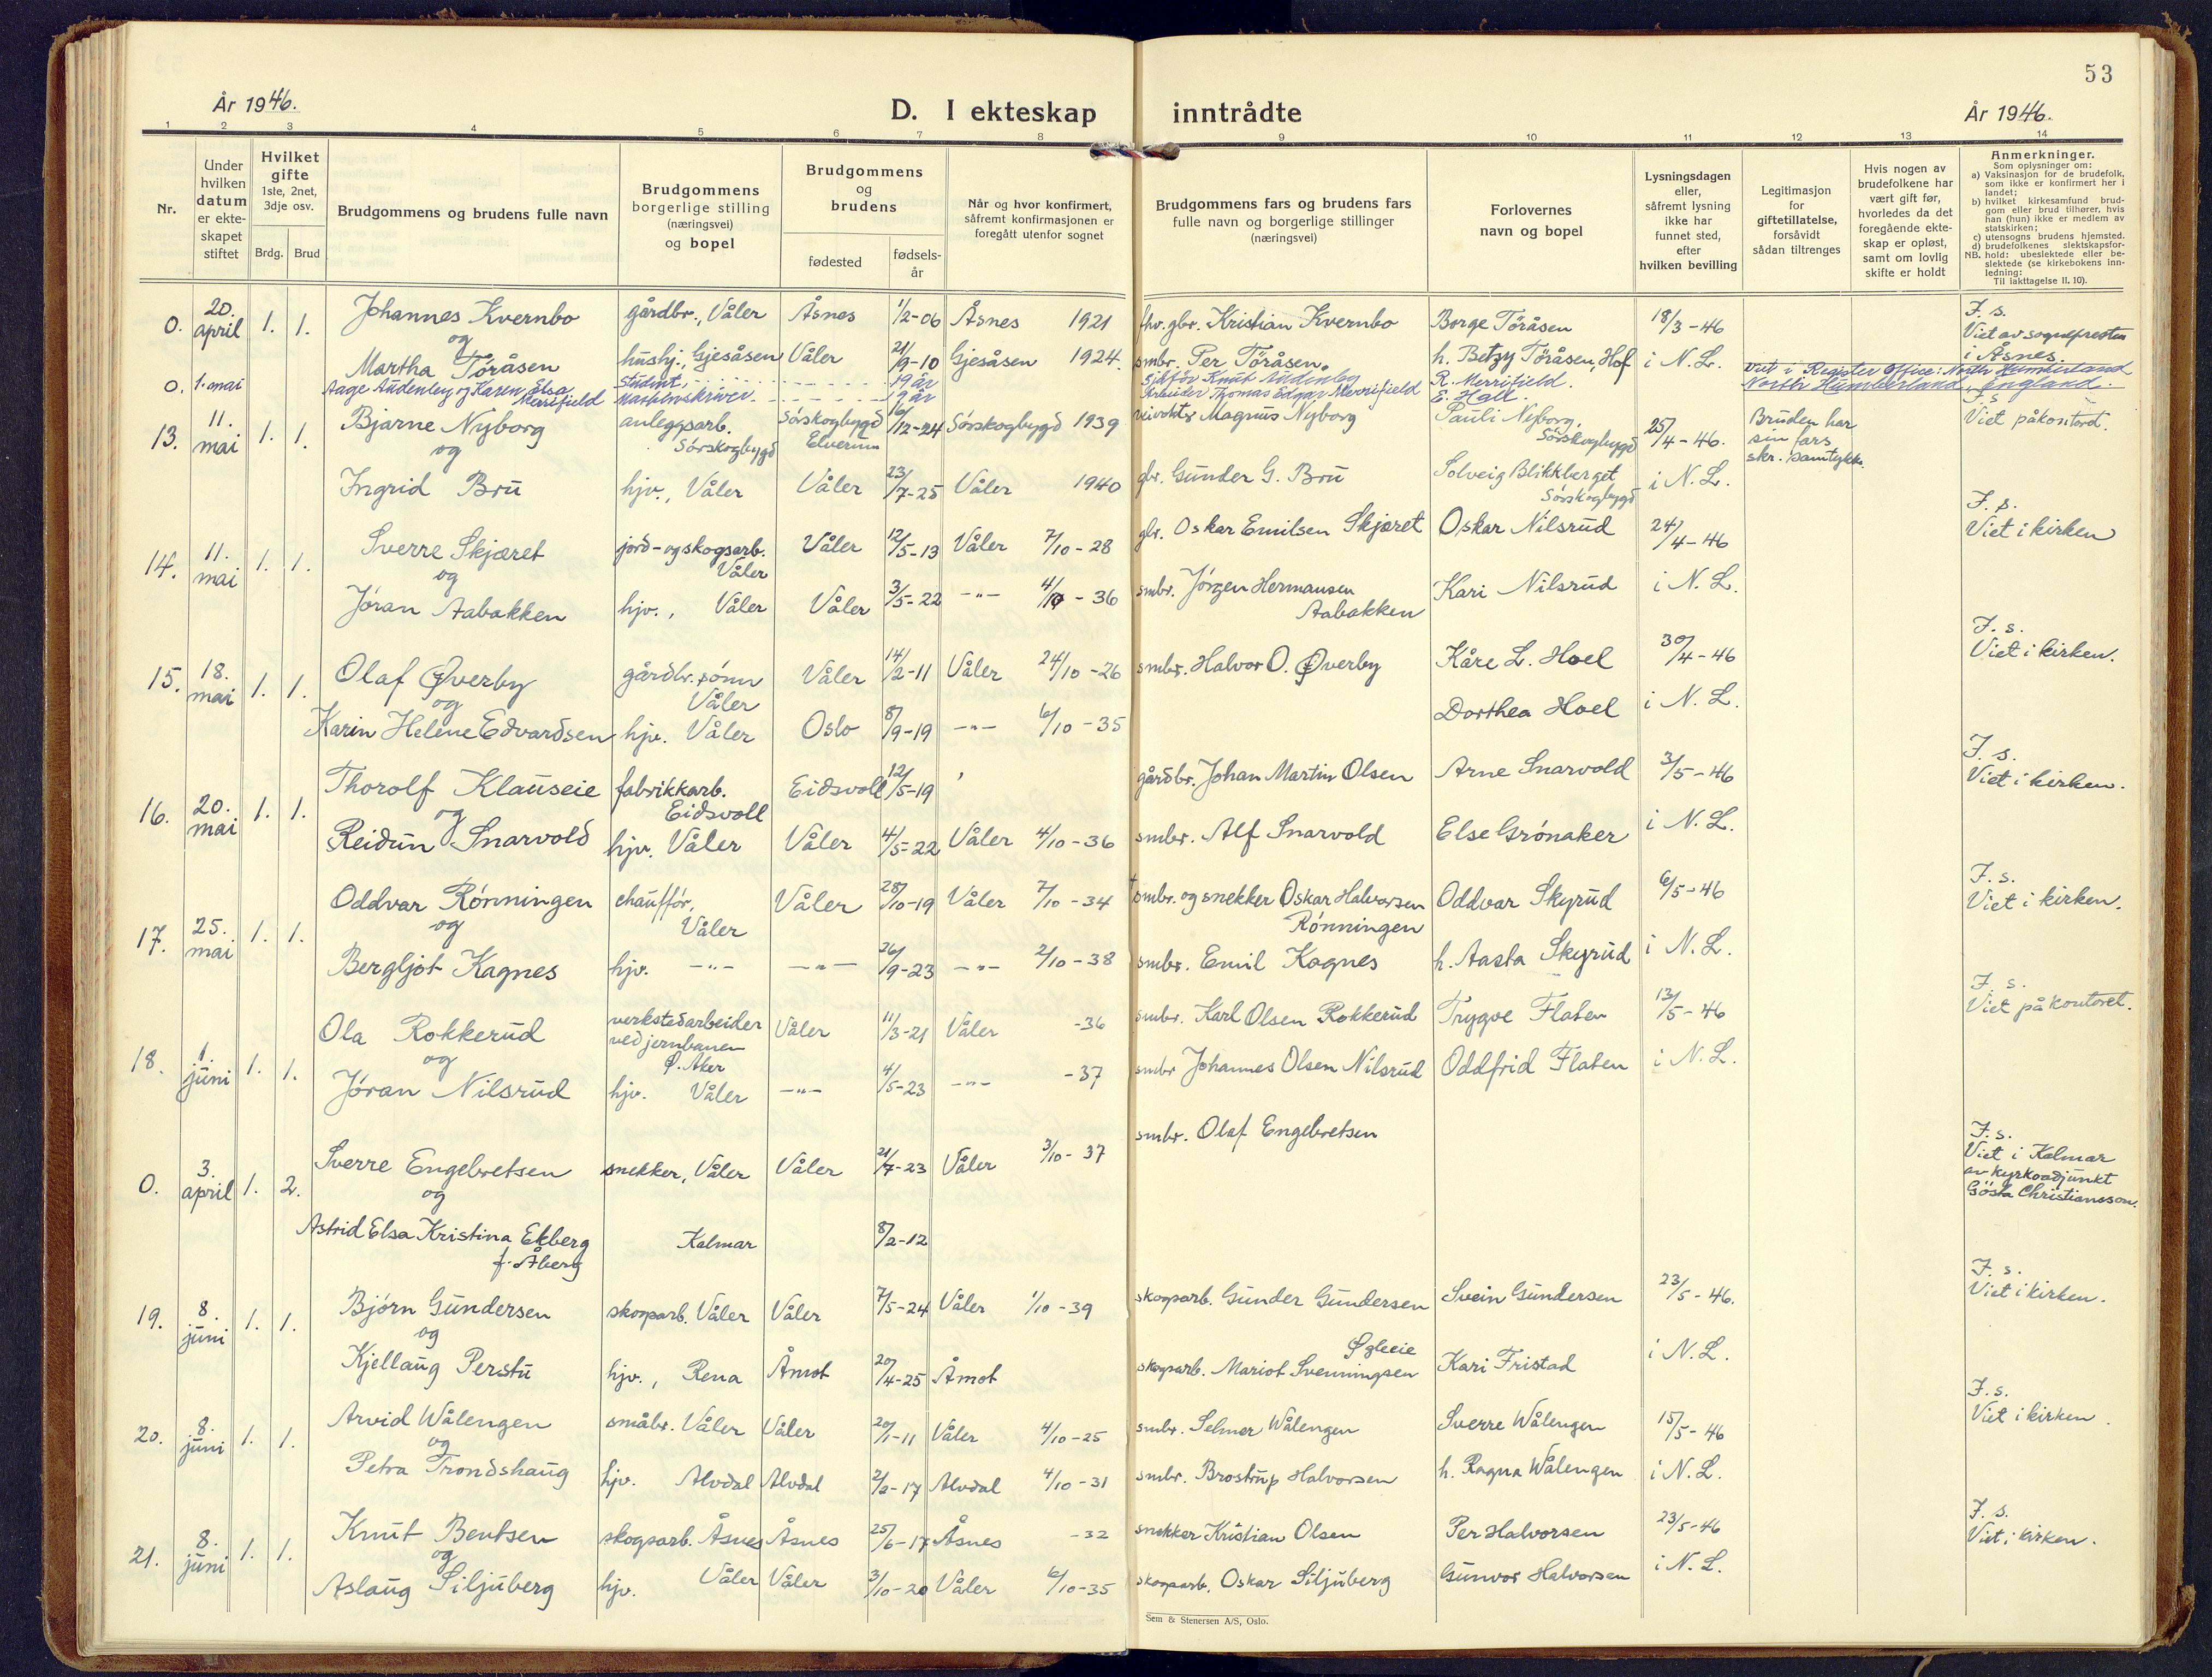 53
År 1946.
D. I ekteskap inntrådte
År 1946.
1 2 3 4 5 6 7 8 9 10 11 12 13 14
Nr.
Under hvilken datum er ekteskapet stiftet
Hvilket gifte 1ste, 2net, 3dje osv.
Brdg. Brud
Brudgommens og brudens fulle navn
Brudgommens borgerlige stilling (næringsvei) og bopel
Brudgommens og brudens
fødested fødsels-år
Når og hvor konfirmert, såfremt konfirmasjonen er foregått utenfor sognet
Brudgommens fars og brudens fars fulle navn og borgerlige stillinger (næringsvei)
Forlovernes navn og bopel
Lysningsdagen eller, såfremt lysning ikke har funnet sted, efter hvilken bevilling
Legitimasjon for giftetillatelse, forsåvidt sådan tiltrenges
Hvis nogen av brudefolkene har vært gift før, hvorledes da det foregående ekteskap er opløst, samt om lovlig skifte er holdt
Anmerkninger.
Som oplysninger om:
a) Vaksinasjon for de brudefolk, som ikke er konfirmert her i landet;
b) hvilket kirkesamfund brudgom eller brud tilhører, hvis han (hun) ikke er medlem av statskirken;
c) utensogns brudens hjemsted.
d) brudefolkenes slektskapsforhold: ubeslektede eller beslektede (se kirkebokens innledning:
NB.
Til iakttagelse II. 10).
0. 20. april 1. 1. Johannes Kvernbo gårdbr., Våler Åsnes 1/2-06 Åsnes 1921 fhv. gbr. Kristian Kvernbo Borge Töråsen 18/3-46 F. s. Viet av sognepresten i Åsnes.
og
Martha Töråsen hushj., Gjesåsen Våler 21/9-10 Gjesåsen 1924. smbr. Per Töråsen. h. Betzy Töråsen, Hof i N. L.
0. 1. mai Aage Audenby og Karen Elsa Merrifield student, 19 år Sjåför Knut Audenby R. Merrifield. Viet i Register Office: North Humberland
Maskinskriver 19 år Arbeider Thomas Edgar Merrifield E. Hall. North Humberland, England.
13. 11. mai 1. 1. Bjarne Nyborg anleggsarb. Sörskogbygd Sörskogbygd Elverum 16/12-24 Sörskogbygd 1939 veivokter Magnus Nyborg Pauli Nyborg, Sörskogbygd 25/4-46. Bruden har sin fars skr. samtykke F. s Viet på kontord.
og
Ingrid Bru hjv., Våler Våler 23/7-25 Våler 1940 gbr. Gunder G. Bru Solveig Blikkberget Sörskogbygd i N. L.
14. 11. mai 1. 1. Sverre Skjæret jord- og skogsarb. Våler Våler 12/5-13 Våler 7/10-28 gbr. Oskar Emilsen Skjæret Oskar Nilsrud 24/4-46 F. s. Viet i kirken
og
Jöran Aabakken hjv., Våler Våler 3/5-22 -"- 4/10-36 smbr. Jörgen Hermansen Aabakken Kari Nilsrud i N. L.
15. 18. mai 1. 1. Olaf Øverby gårdbr.sönn Våler Våler 14/2-11 Våler 24/10-26 smbr. Halvor O. Øverby Kåre L. Hoel 30/4-46 F. s. Viet i kirken.
og
Karin Helene Edvardsen hjv. Våler Oslo 8/9-19 -"- 6/10-35 Dorthea Hoel i N. L.
16. 20. mai 1. 1. Thorolf Klauseie fabrikkarb. Eidsvoll Eidsvoll 12/5-19 gårdbr. Johan Martin Olsen Arne Snarvold 3/5-46 F. s. Viet i kirken.
og
Reidun Snarvold hjv. Våler Våler 4/5-22 Våler 4/10-36 smbr. Alf Snarvold Else Grönaker i N. L.
17. 25. mai 1. 1. Oddvar Rönningen chaufför, Våler Våler 28/10-19 Våler 7/10-34 † smbr. og snekker Oskar Halvorsen Rönningen Oddvar Skyrud 6/5-46 F. s. Viet i kirken.
og
Bergljot Kagnes hjv. -"- -"- 26/9-23 -"- 2/10-38 smbr. Emil Kagnes h. Aasta Skyrud i N. L.
18. 1. juni 1. 1. Ola Rokkerud verkstedarbeider ved jernbanen Ø. Aker Våler 11/3-21 Våler -36 smbr. Karl Olsen Rokkerud Trygve Flaten 13/5-46 F. s. Viet på kontoret.
og
Jöran Nilsrud hjv. Våler -"- 4/5-23 -"- -37 smbr Johannes Olsen Nilsrud Oddfrid Flaten i N. L.
0. 3. april 1. 2. Sverre Engebretsen snekker, Våler Våler 21/7-23 Våler 3/10-37 smbr. Olaf Engebretsen F. s. Viet i Kalmar av kyrkoadjunkt Gösta Christiansson.
og
Astrid Elsa Kristina Ekberg f. Åberg Kalmar 8/2-12
19. 8. juni 1. 1. Björn Gundersen skogsarb. Våler Våler 7/5-24 Våler 1/10-39 skogsarb. Gunder Gundersen Svein Gundersen 23/5-46. F. s. Viet i kirken.
og
Kjellaug Perstu hjv., Rena Åmot 20/4-25 Åmot skogsarb. Mariot Svenningsen Øgleeie Kari Fristad i N. L.
20. 8. juni 1. 1. Arvid Wålengen småbr. Våler Våler 20/1-11 Våler 4/10-25 smbr. Selmer Wålengen Sverre Wålengen 15/5-46 F. s. Viet i kirken.
og
Petra Trondshaug hjv. Alvdal Alvdal 2/2-17 Alvdal 4/10-31 smbr. Brostrup Halvorsen h. Ragna Wålengen i N. L.
21. 8. juni 1. 1. Knut Bentsen skogsarb. Åsnes Åsnes 25/6-17 Åsnes -32 snekker Kristian Olsen Per Halvorsen 23/5-46 F. s. Viet i kirken.
og
Aslaug Siljuberg hjv. Våler Våler 3/10-20 Våler 6/10-35 skogsarb. Oskar Siljuberg Gunvor Halvorsen i N. L.
Sem & Stenersen A/S, Oslo.